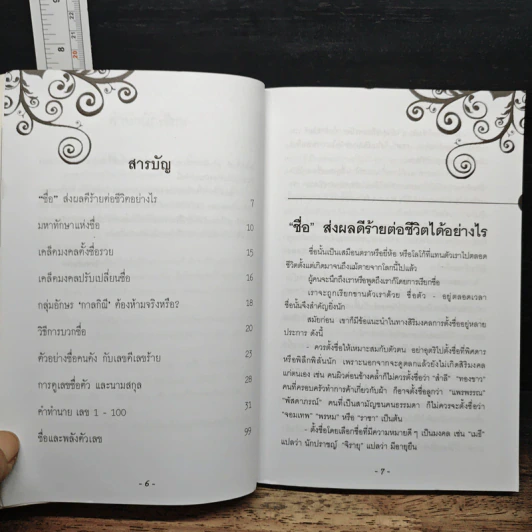 สารบัญ
"ชื่อ" ส่งผลดีร้ายต่อชีวิตอย่างไร 7
มหาทักษาแห่งชื่อ 10
เคล็ดมงคลตั้งชื่อรวย 15
เคล็ดมงคลปรับเปลี่ยนชื่อ 16
กลุ่มอักษร "กาลกิณี" ต้องห้ามจริงหรือ? 18
วิธีการบวกชื่อ 20
ตัวอย่างชื่อคนดัง กับเลขดีเลขร้าย 23
การดูเลขชื่อตัว และนามสกุล 28
คำทำนาย เลข 1 - 100 31
ชื่อและพลังตัวเลข 99
- 6 -
"ชื่อ" ส่งผลดีร้ายต่อชีวิตได้อย่างไร
ชื่อนั้นเป็นเสมือนตราหรือยี่ห้อ หรือโลโก้ที่แทนตัวเราไปตลอด
ชีวิตตั้งแต่เกิดมาจนถึงแม้ตายจากโลกนี้ไปแล้ว
ผู้คนจะนึกถึงเราหรือพูดถึงเราก็โดยการเรียกชื่อ
เราจะถูกเรียกขานตัวเราด้วย ชื่อตัว - อยู่ตลอดเวลา
ชื่อนั้นจึงสำคัญยิ่งนัก
สมัยก่อน เขาก็มีข้อแนะนำในทางสิริมงคลการตั้งชื่ออยู่หลาย
ประการ ดังนี้
- ควรตั้งชื่อให้เหมาะสมกับตัวตน อย่าอุตริไปตั้งชื่อที่พิสดาร
หรือพิลึกพิลั่นนัก เพราะนอกจากจะดูตลกแล้วยังไม่เกิดสิริมงคล
แก่ตนเอง เช่น คนผิวค่อนข้างคล้ำก็ไม่ควรตั้งชื่อว่า "สำลี" "ทองขาว"
คนที่ครอบครัวทำการค้าเกี่ยวกับผ้า ก็อาจตั้งชื่อลูกว่า "แพรพรรณ"
"พัสตาภรณ์" คนที่เป็นสามัญชนคนธรรมดา ก็ไม่ควรจะตั้งชื่อว่า
"จอมเทพ" "พรหม" หรือ "ราชา" เป็นต้น
- ตั้งชื่อโดยเลือกชื่อที่มีความหมายดี ๆ เป็นมงคล เช่น "เมธี"
แปลว่า นักปราชญ์ "จิรายุ" แปลว่า มีอายุยืน
- 7 -
8
9